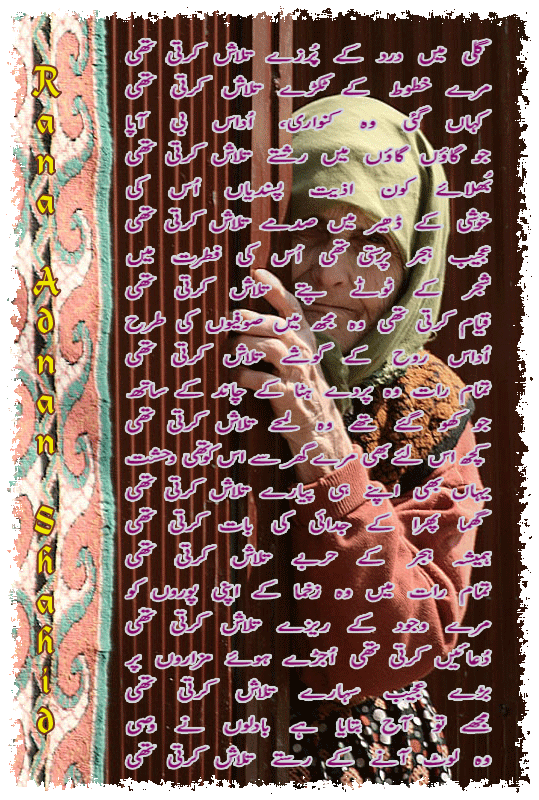 Rana Adnan Shahid
گلی میں درد کے پُرزے تلاش کرتی تھی
مرے خطوط کے ٹکڑے تلاش کرتی تھی
کہاں گئی وہ کنواری، اُداس بی آپا
جو گاؤں گاؤں میں رشتے تلاش کرتی تھی
بُھلائے کون اذیت پسندیاں اُس کی
خوشی کے ڈھیر میں صدمے تلاش کرتی تھی
عجیب ہجر پرستی تھی اُس کی فطرت میں
شجر کے ٹوٹے پتے تلاش کرتی تھی
قیام کرتی تھی وہ مجھ میں صوفیوں کی طرح
اُداس روح کے گوشے تلاش کرتی تھی
تمام رات وہ پردے ہٹا کے چاند کے ساتھ
جو کھو گئے تھے وہ لمحے تلاش کرتی تھی
کچھ اس لئے بھی مرے گھر سے اس کو تھی وحشت
یہاں بھی اپنے ہی پیارے تلاش کرتی تھی
گھما پھرا کے جدائی کی بات کرتی تھی
ہمیشہ ہجر کے حربے تلاش کرتی تھی
تمام رات میں وہ زخما کے اپنی پوروں کو
مرے وجود کے ریزے تلاش کرتی تھی
دُعائیں کرتی تھی اُجڑے ہوئے مزاروں پر
بڑے عجیب سہارے تلاش کرتی تھی
مجھے تو آج بتایا ہے بادلوں نے وصی
وہ لوٹ آنے کے رستے تلاش کرتی تھی